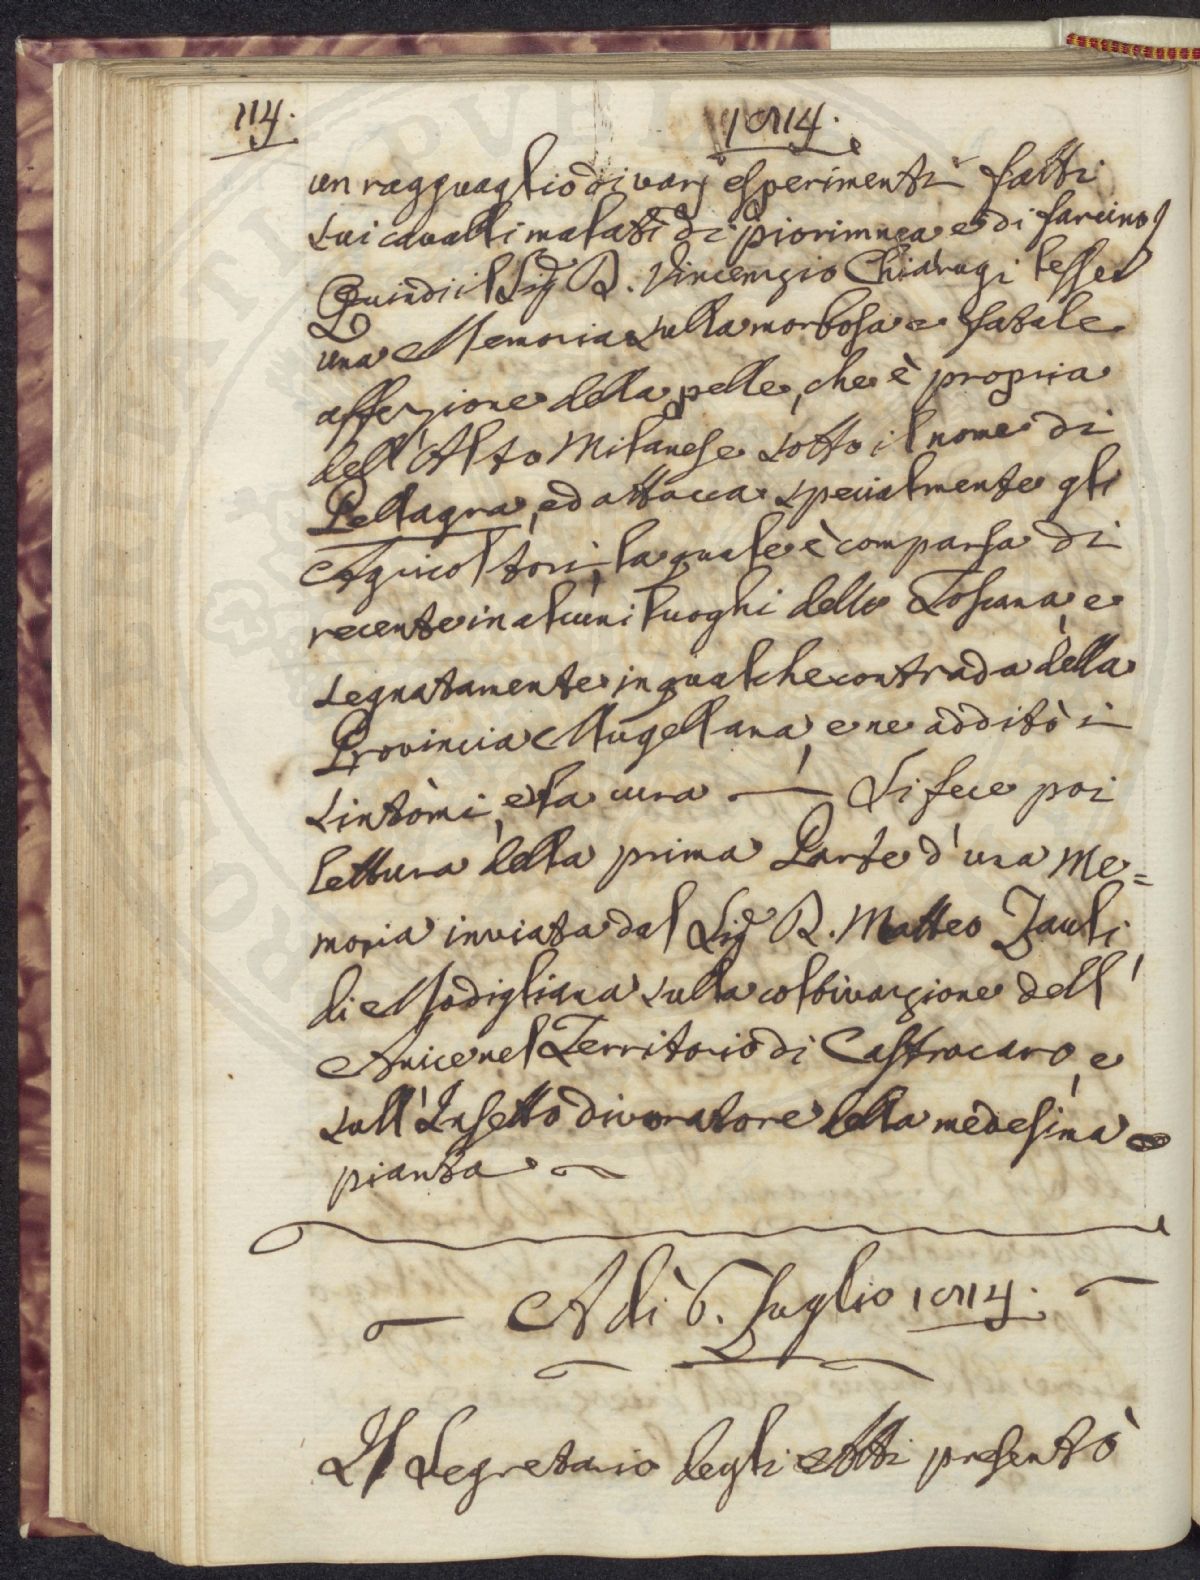 114.
1814.
un ragguaglio di varj esperimenti fatti
sui cavalli malati di piorimnea e di farcino;
Quindi il Sig.r D. Vincenzio Chiarugi lesse
una Memoria sulla morbosa e fatale
affezione della pelle, che è propria
dell'Alto Milanese sotto il nome di
Pellagra, ed attacca specialmente gli
Agricoltori, la quale è comparsa di
recente in alcuni luoghi della Toscana, e
segnatamente in qualche contrada della
Provincia Mugellana, e ne additò i
sintòmi, e la cura — Si fece poi
lettura della prima Parte d'una Me=
moria inviata dal Sig.r D. Matteo Zauli
di Modigliana sulla coltivazione dell'
Anice nel Territorio di Castrocaro, e
sull'Insetto divoratore della medesima
pianta
A dì 6. Luglio 1814.
Il Segretario degli Atti presentò